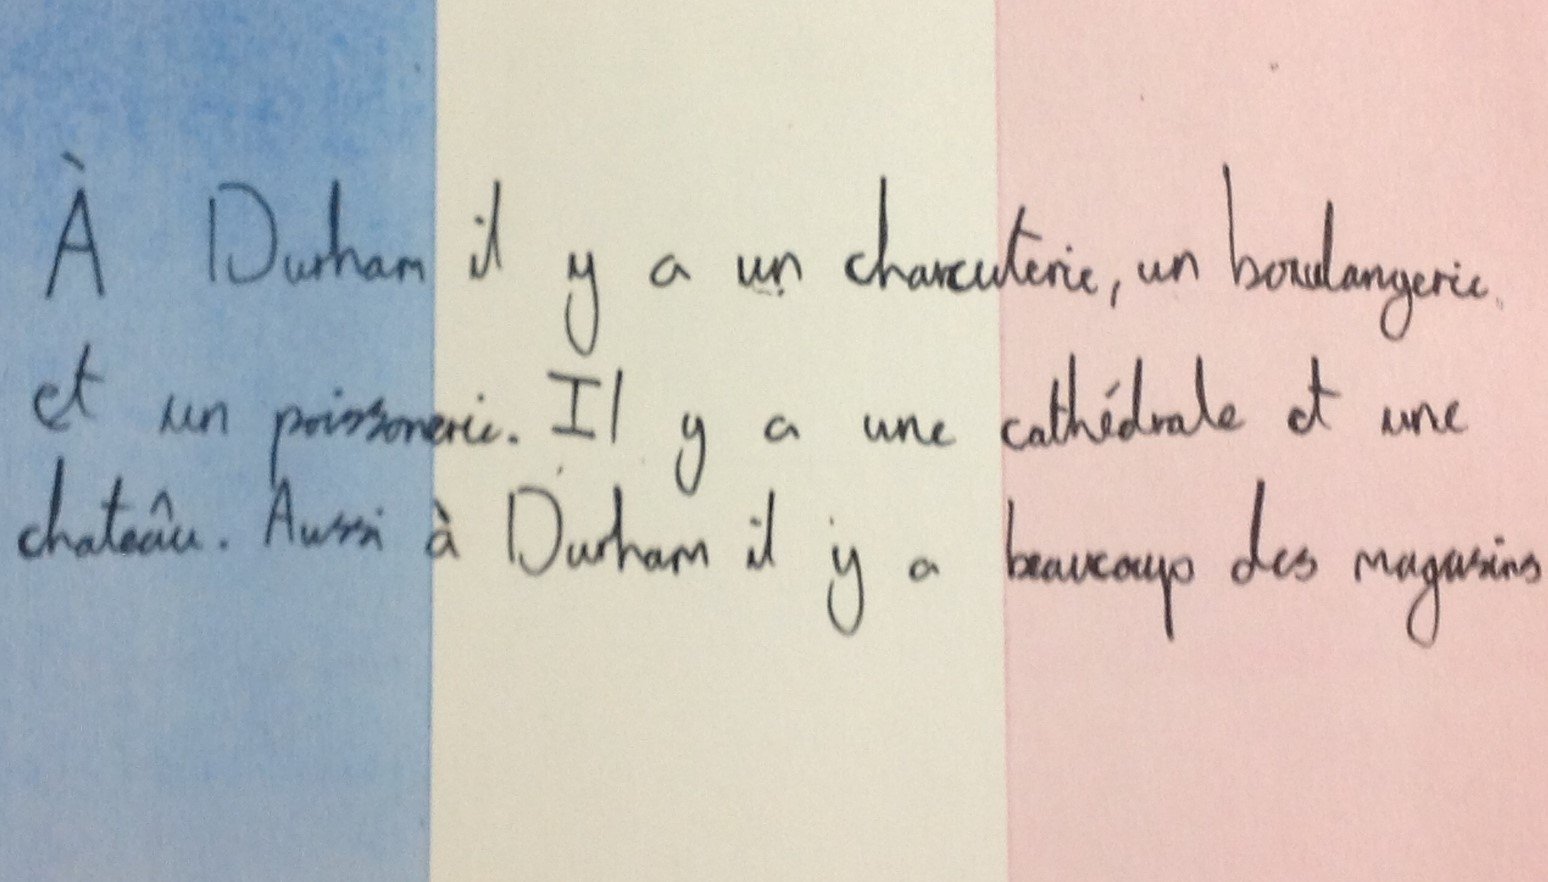 À Durham il y a un charcuterie, un boulangerie
et un poissonerie. Il y a une cathédrale et une
chateâu. Aussi à Durham il y a beaucoup des magasins